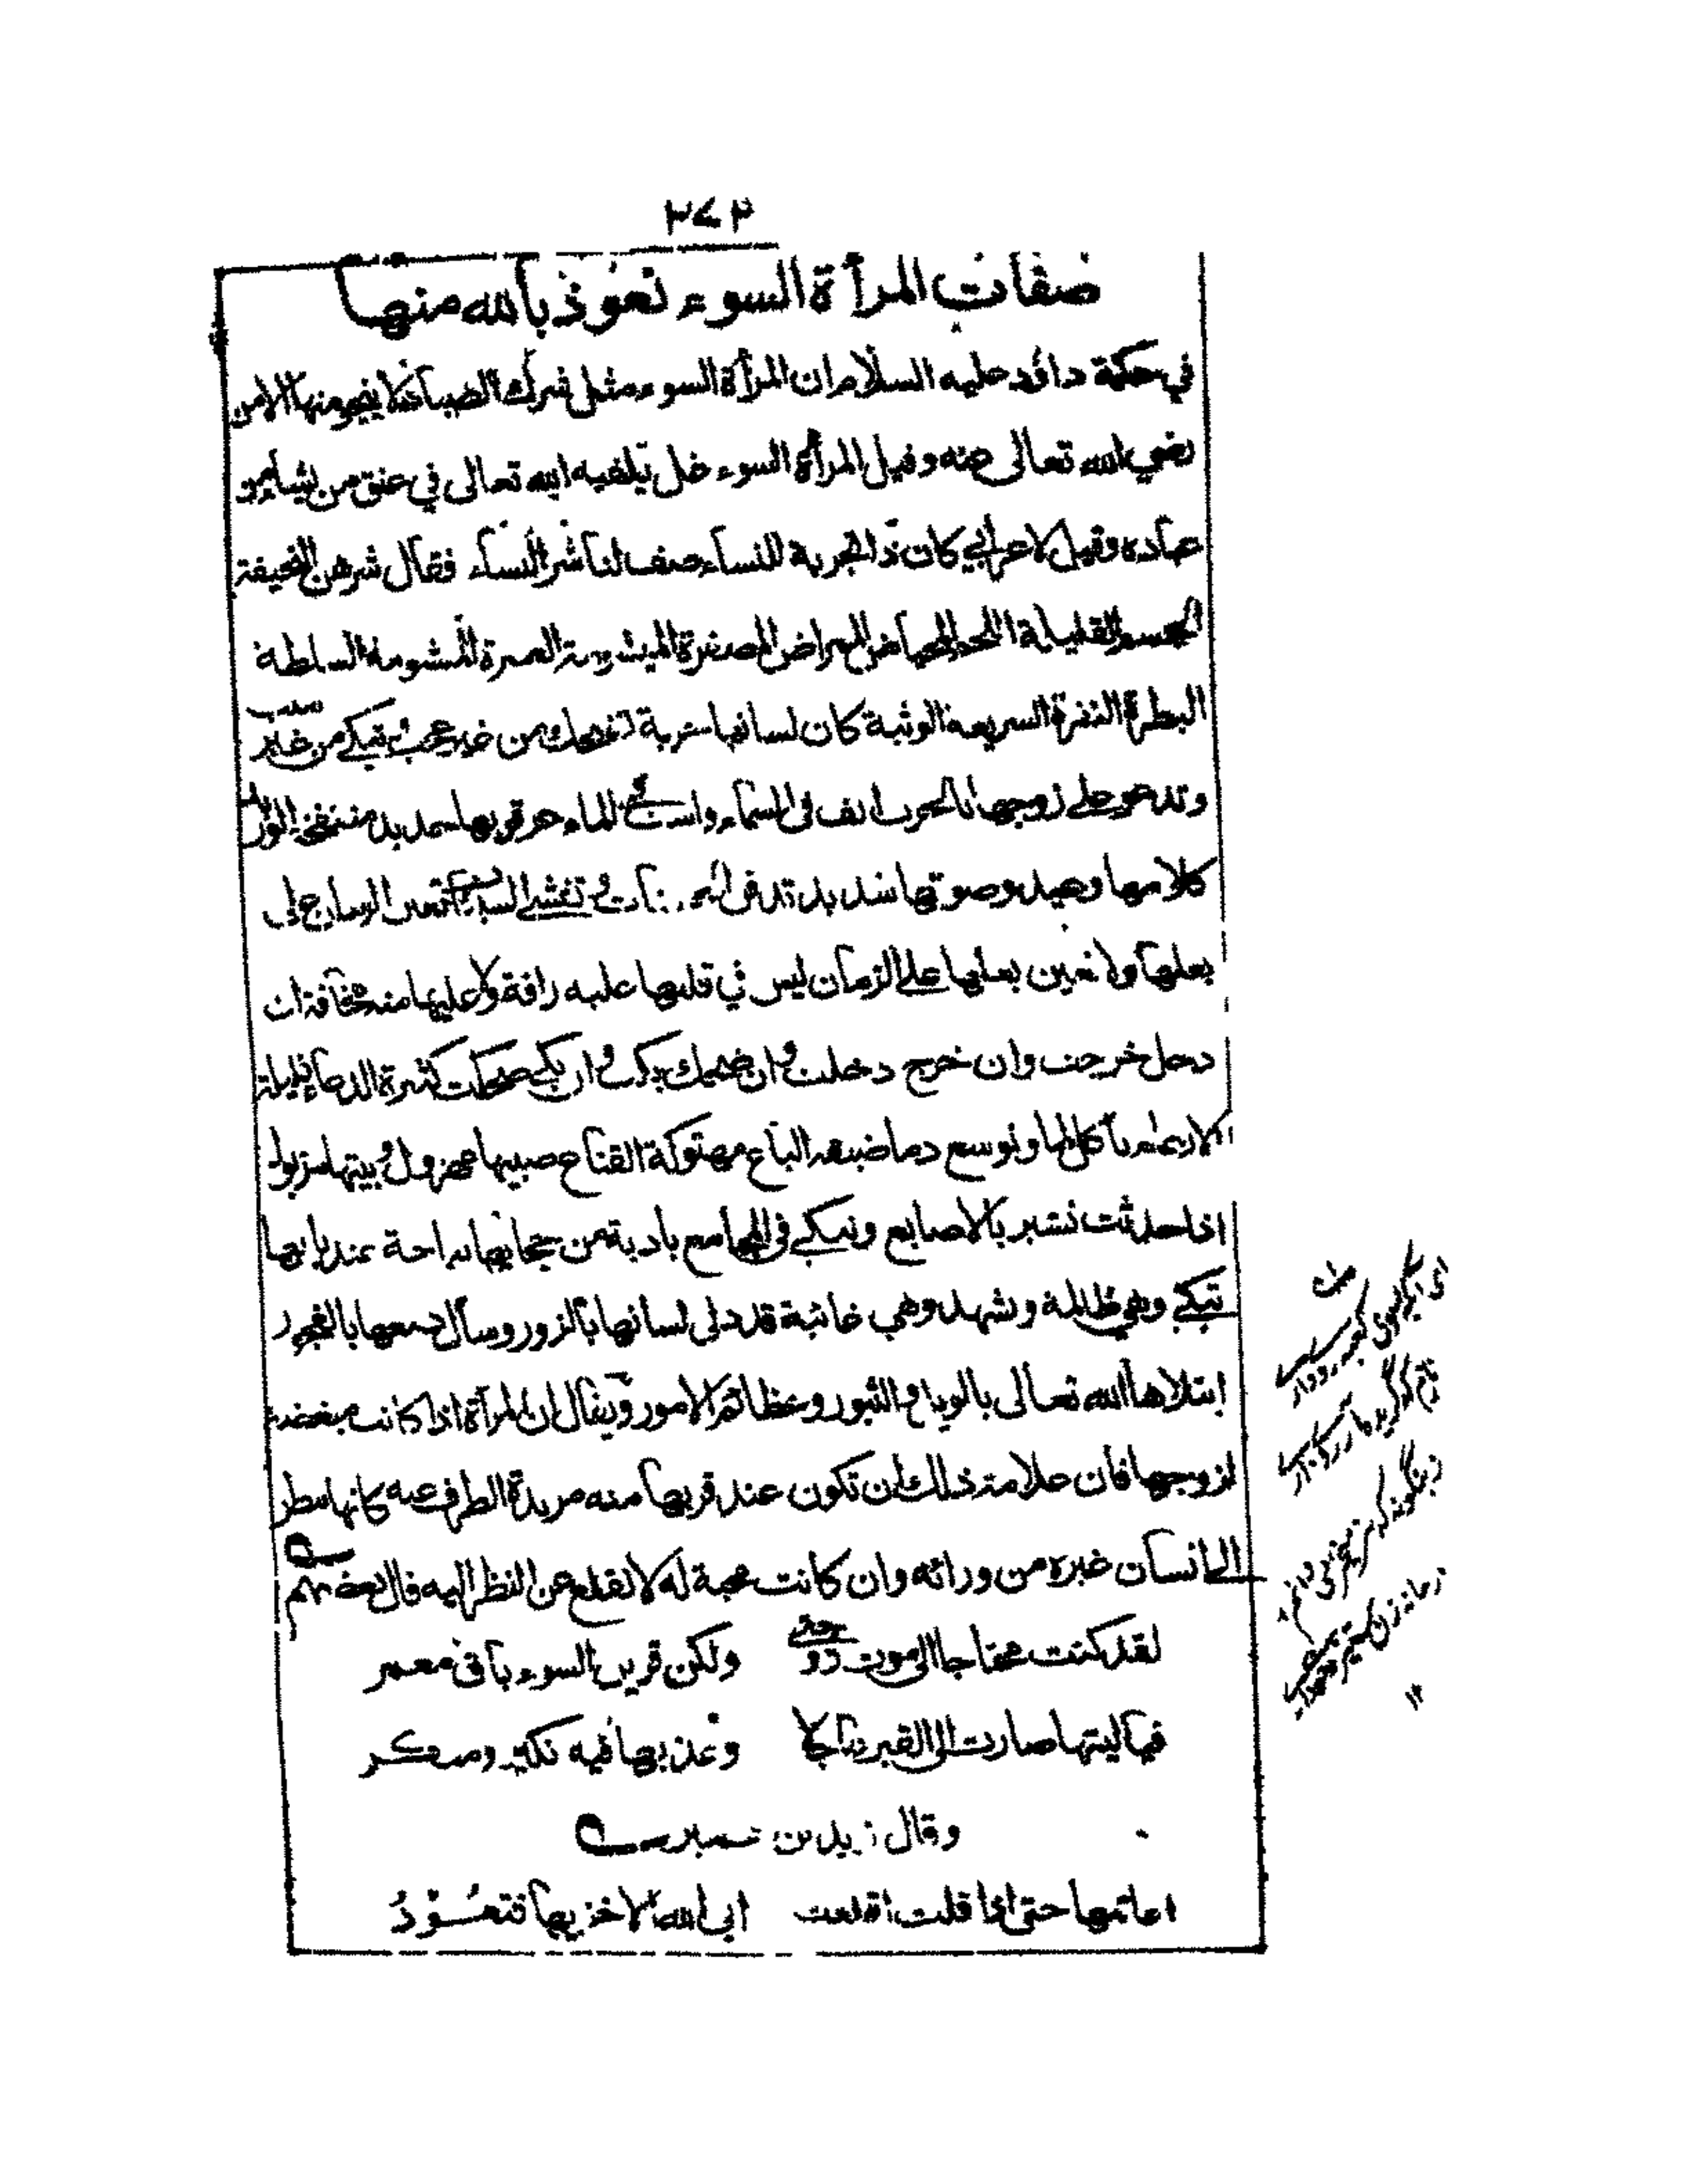 ٢٧٢
صفات المرأة السوء نعوذ بالله منها
في حكمة داؤد عليه السلام ان المرأة السوء مثل شرك الصياد لا ينجو منها الا من
رضي الله تعالى عنه وقيل المرأة السوء غل يلقيه الله تعالى في عنق من يشاء من
عباده وقيل لاعرابي كان ذا تجربة للنساء صف لنا شر النساء فقال شرهن النحيفة
الجسم القليلة اللحم المحياض الممراض المصفرة الميشومة العسرة المشومة السلطة
البطرة النفرة السريعة الوثبة كان لسانها حربة تضحك من غير عجب وتبكي من غير سبب
وتدعو على زوجها بالحرب انف في السماء واست في الماء عرقوبها حديد منتفخة الوريد
كلامها وعيد وصوتها شديد تدفن الحسنات وتفشي السيئات تعين الزمان على
بعلها ولا تعين بعلها على الزمان ليس في قلبها عليه رافة ولا عليها منه مخافة ان
دخل خرجت وان خرج دخلت وان ضحك بكت وان بكى ضحكت كثيرة الدعاء قليلة
الارعاء تأكل لما وتوسع ذما ضيقة الباع مهتوكة القناع صبيها مهزول وبيتها مزبول
اذا حدثت تشير بالاصابع وتبكي في المجامع بادية من حجابها نباحة عند بابها
تبكي وهي ظالمة وتشهد وهي غائبة قد دلى لسانها بالزور وسال دمعها بالفجور
ابتلاها الله تعالى بالويل والثبور وعظائم الامور ويقال ان المرأة اذا كانت مبغضة
لزوجها فان علامة ذلك ان تكون عند قربها منه مرتدة الطرف عنه كانها تنظر
الى انسان غيره من ورائه وان كانت محبة له لا تقلع عن النظر اليه قال بعضهم
لقد كنت محتاجا الى موت زوجتي ولكن قرين السوء باق معمر
فيا ليتها صارت الى القبر عاجلا وعذبها فيه نكير ومنكر
وقال زيد بن عمير
اعاتبها حتى اذا قلت اقلعت ابى الله الا خزيها فتعود